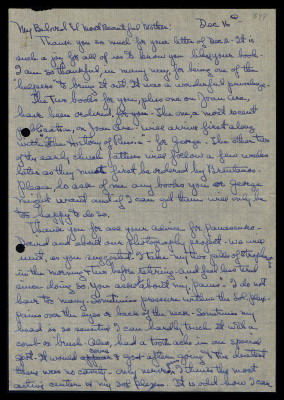 My Beloved & most Beautiful Mother: Dec 16
Thank you so much for your letter of Dec 2. It is
such a joy for all of us to know you like your book.
I am so thankful in many ways for being one of the
helpers to bring it out. It was a wonderful privilege.
The two books for you, plus one on Joan Arc,
have been ordered for you. The one, a most recent
publication, on Joan Arc will arrive first along
with "The History of Russia" for George. The other two
of the early church fathers will follow a few weeks
later as they must first be ordered by Brentanos.
Please do ask of me any books you or George
might want and if I can get them will only be
too happy to do so.
Thank you for all your advice for
and about our photography project. We will
wait, as you suggested. I take my two pills
in the morning & two before retiring and feel less tired
since doing so. You asked about my "pains." I do not
have too many. Sometimes pressure within the
pains over the eyes or back of the neck. Sometimes my
head is so sensitive I can hardly touch it with a
comb or brush. Also, had a tooth ache in one special
spot. It would appear & go & after going to the dentist
there was no cavity. Only nerves, I think. My most
acting center is my Sol. Plexus. It is odd how I can